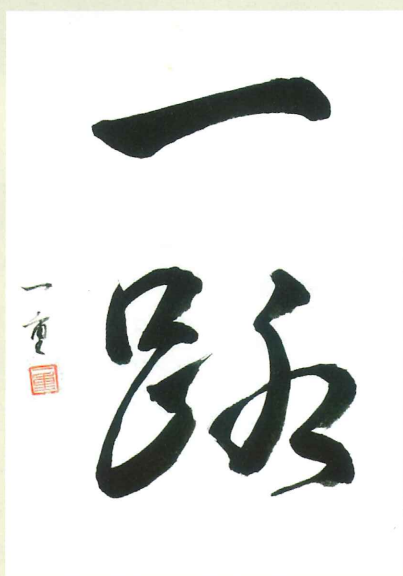 一路
一重